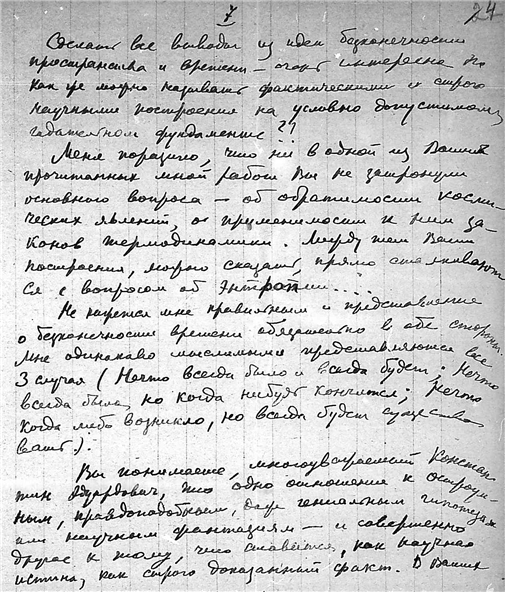 7
24
Сделать все выводы из идеи безконечности
пространства и времени — очень интересно но
как же можно называть фактическими и строго
научными построения на условно допустимом,
гадательном фундаменте??
Меня поразило, что ни в одной из Ваших
прочитанных мной работ Вы не затронули
основного вопроса — об обратимости косми-
ческих явлений, о применимости к ним за-
конов термодинамики. Между тем Ваши
построения, можно сказать, прямо сталкивают-
ся с вопросом об Энтропии....
Не кажется мне правильным и представление
о безконечности времени обязательно в обе стороны.
Мне одинаково мыслимыми представляются все
3 случая (Нечто всегда было и всегда будет; Нечто
всегда было, но когда нибудь кончится; Нечто
когда либо возникло, но всегда будет существо
вать).
Вы понимаете, многоуважаемый Констан
тин Эдуардович, что одно отношение к остроум-
ным, правдоподобным, даже гениальным гипотезам
или научным фантазиям — и совершенно
другое к тому, что ставится, как научная
истина, как строго доказанный факт. В Ваших